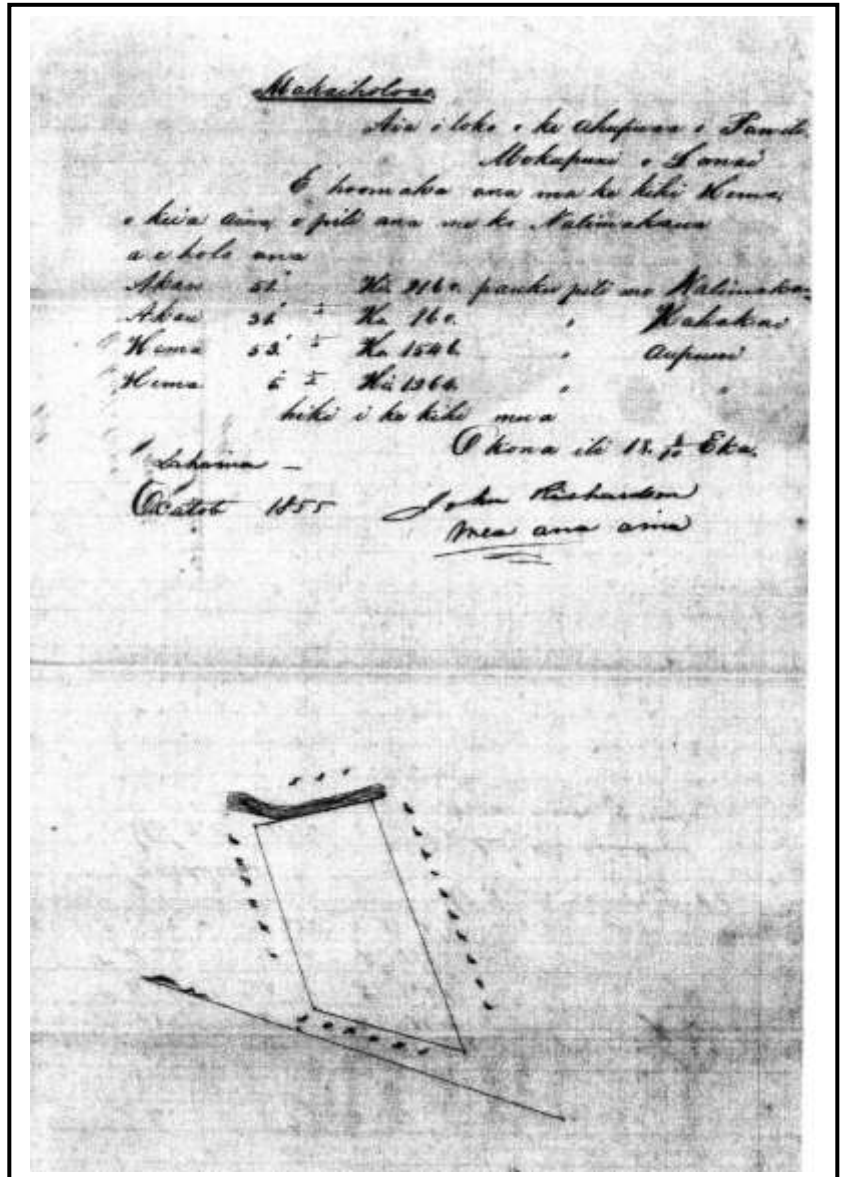 Makaiholoae
Aia i loko o ke Ahupuaa o Pawili
Mokupuni o Lanai
E hoomaka ana ma ke kihi Hema,
o keia aina, e pili ana me ko Nalimakaua
a e holo ana
Akau 51° Hi. 2160. pauku pili me Nalimakaua
Akau 31° ½ Ko. 160. " Kahakai
Hema 53° ½ Ko. 1546. " Aupuni
Hema ½ Hi. 1964. " "
hiki i ke kihi mua
O kona ili 18. /10 Eka.
Lahaina —
Okatob 1855 John Richardson
Mea ana aina